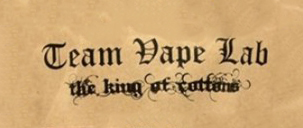 Team Vape Lab
the king of cottons